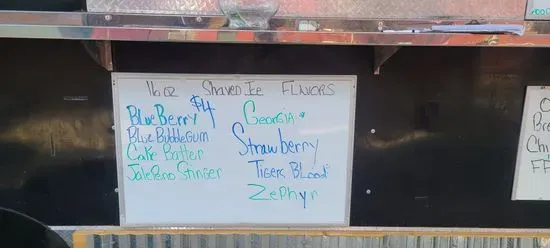 16 oz Shaved Ice FLAVORS
$4
Blue Berry
Blue Bubble Gum
Cake Batter
Jalepeno Stinger
Georgia
Strawberry
Tigers Blood
Zephyr
Chi
FF